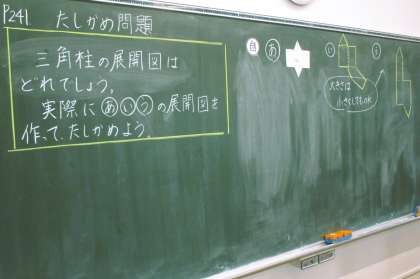 P241. たしかめ問題
三角柱の展開図は
どれでしょう。
実際にあいうの展開図を
作って、たしかめよう。
自
あ
い
う
大きさは
小さくしてもOK